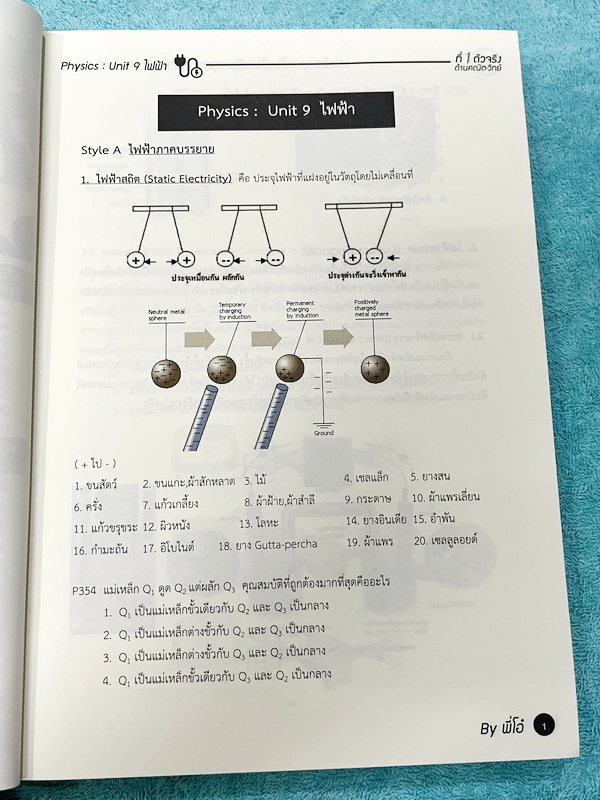 Physics : Unit 9 ไฟฟ้า
ที่ 1 ตัวจริง
ด้านคณิต-วิทย์
Physics : Unit 9 ไฟฟ้า
Style A ไฟฟ้าภาคบรรยาย
1. ไฟฟ้าสถิต (Static Electricity) คือ ประจุไฟฟ้าที่แฝงอยู่ในวัตถุโดยไม่เคลื่อนที่
+ + -- -- + --
ประจุเหมือนกัน ผลักกัน
ประจุต่างกันจะวิ่งเข้าหากัน
Neutral metal sphere
Temporary charging by induction
Permanent charging by induction
Positively charged metal sphere
Ground
( + ไป - )
1. ขนสัตว์ 2. ขนแกะ,ผ้าสักหลาด 3. ไม้ 4. เชลแล็ก 5. ยางสน
6. ครั่ง 7. แก้วเกลี้ยง 8. ผ้าฝ้าย,ผ้าสำลี 9. กระดาษ 10. ผ้าแพรเลี่ยน
11. แก้วขรุขระ 12. ผิวหนัง 13. โลหะ 14. ยางอินเดีย 15. อำพัน
16. กำมะถัน 17. อีโบไนต์ 18. ยาง Gutta-percha 19. ผ้าแพร 20. เซลลูลอยด์
P354 แม่เหล็ก Q₁ ดูด Q₂ แต่ผลัก Q₃ คุณสมบัติที่ถูกต้องมากที่สุดคืออะไร
1. Q₁ เป็นแม่เหล็กขั้วเดียวกับ Q₂ และ Q₃ เป็นกลาง
2. Q₁ เป็นแม่เหล็กต่างขั้วกับ Q₂ และ Q₃ เป็นกลาง
3. Q₁ เป็นแม่เหล็กต่างขั้วกับ Q₃ และ Q₂ เป็นกลาง
4. Q₁ เป็นแม่เหล็กขั้วเดียวกับ Q₃ และ Q₂ เป็นกลาง
By พี่โอ๋ 1